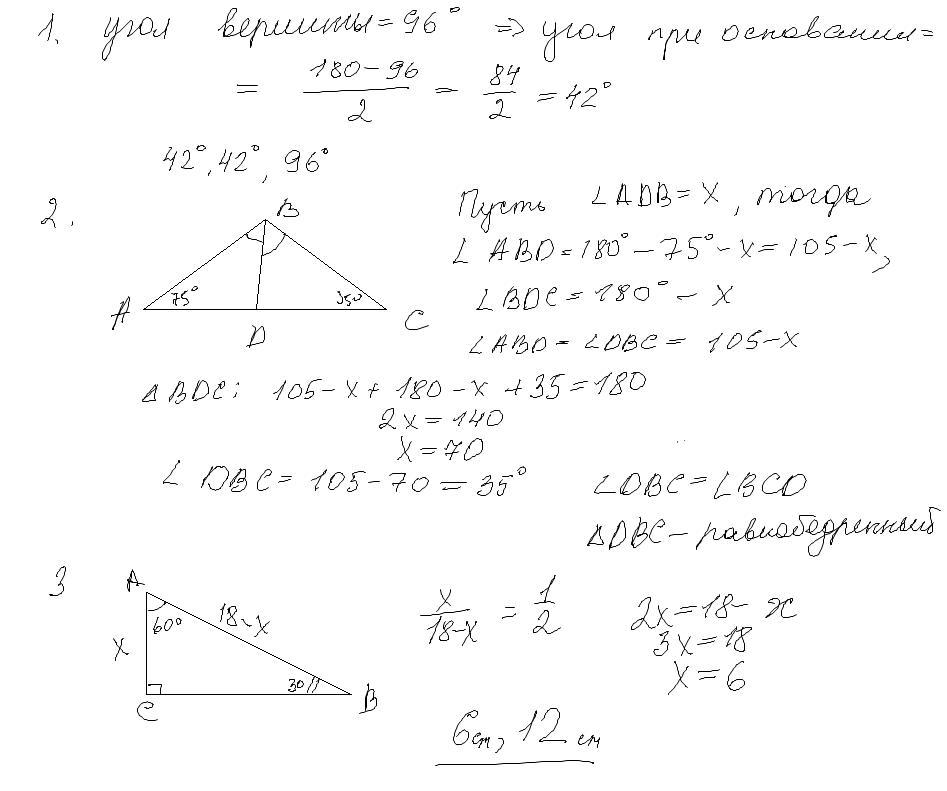 1. угол вершины = 96° ⇒ угол при основании =
= (180 − 96)/2 = 84/2 = 42°
42°, 42°, 96°
2.
B
75°
35°
A
D
C
Пусть ∠ADB = x, тогда
∠ABD = 180° − 75° − x = 105 − x,
∠BDC = 180° − x
∠ABD = ∠DBC = 105 − x
△BDC: 105 − x + 180 − x + 35 = 180
2x = 140
x = 70
∠DBC = 105 − 70 = 35°
∠DBC = ∠BCD
△DBC − равнобедренный
3
A
60°
18 − x
x
30
C
B
x/(18 − x) = 1/2
2x = 18 − x
3x = 18
x = 6
6 cm, 12 cm